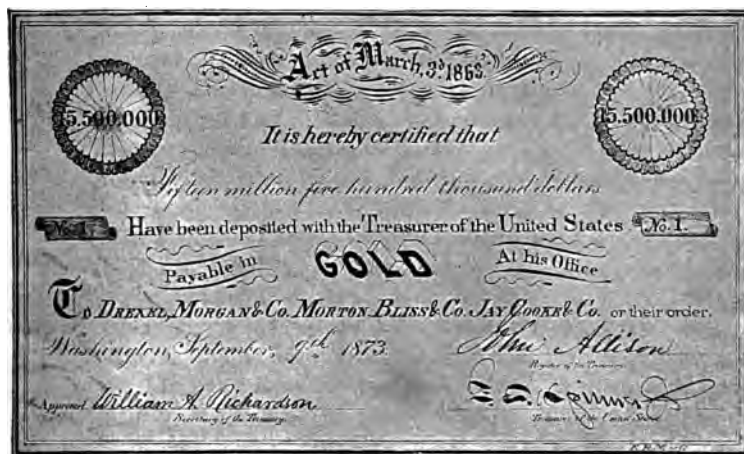 Act of March, 3d 1863.
15.500.000 15.500.000
It is hereby certified that
Fifteen million five hundred thousand dollars
No. 1. Have been deposited with the Treasurer of the United States No. 1.
Payable in GOLD At his Office
To DREXEL, MORGAN & CO. MORTON, BLISS & CO. JAY COOKE & CO. or their order.
Washington, September, 9th 1873. John Allison
Register of the Treasury.
Approved William A. Richardson
Secretary of the Treasury. Treasurer of the United States.